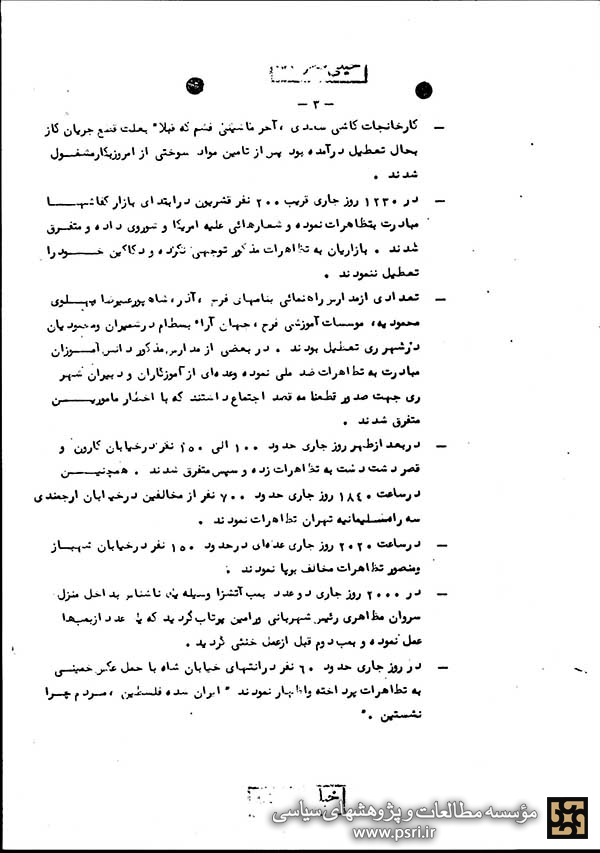 - ۳ -
- کارخانجات کاشی سعدی ، آجر ماشینی قشم که قبلا" بعلت قطع جریان گاز
بحال تعطیل درآمده بود پس از تامین مواد سوختی از امروزبکارمشغول
شدند .
- در ۱۲۳۰ روز جاری قریب ۲۰۰ نفر قشریون درابتدای بازار کفاشهـــا
مبادرت بتظاهرات نموده و شعارهائی علیه امریکا و شوروی داده و متفـرق
شدند . بازاریان به تظاهرات مذکور توجهی نکرده و دکاکین خـــود را
تعطیل ننمودند .
- تعدادی ازمدارس راهنمائی بنامهای فرح ، آذر، شاهپورعلیرضا پهـلـوی
محمودیه، موسسات آموزشی فرح ، جهان آرا، بسطام درشمیران ومحمودیان
درشهرری تعطیل بودند . در بعضی از مدارس مذکور دانش آمـــوزان
مبادرت به تظاهرات ضد ملی نموده وعده‌ای از آموزگاران و دبیران شهر
ری جهت صدور قطعنامه قصد اجتماع داشتند که با اخطار مامورـیـــن
متفرق شدند .
- دربعد ازظهر روز جاری حدود ۱۰۰ الی ۱۵۰ نفر درخیابان کارون و
قصر دشت دست به تظاهرات زده و سپس متفرق شدند . همچنیـــن
درساعت ۱۸۴۰ روز جاری حدود ۷۰۰ نفر از مخالفین درخیابان ارجمندی
سه راه سلیمانیه تهران تظاهرات نمودند .
- درساعت ۲۰۲۰ روز جاری عده‌ای درحدود ۱۵۰ نفر درخیابان شهبــاز
ومنصور تظاهرات مخالف برپا نمودند .
- در ۲۰۰۰ روز جاری دوعدد بمب آتشزا وسیله یک ناشناس بداخل منزل
سروان مظاهری رئیس شهربانی ورامین پرتاب گردید که یک عدد ازبمب‌ها
عمل نموده و بمب دوم قبل ازعمل خنثی گردید .
- در روز جاری حدود ۶۰ نفر درانتهای خیابان شاه با حمل عکس خمینـی
به تظاهرات پرداخته واظهار نمودند " ایران شده فلسطین ، مـردم چـرا
نشستین ."
مؤسسه مطالعات و پژوهشهای سیاسی
www.psri.ir